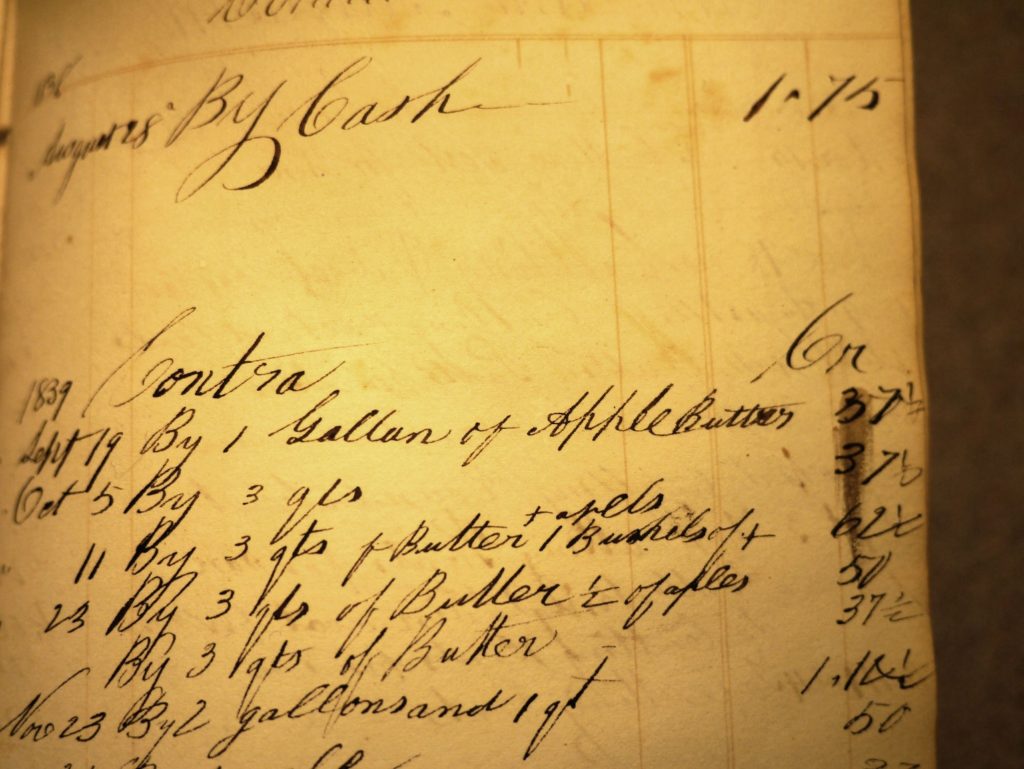 August 28 By Cash 1.75
Contra Cr
1839
Sept 19 By 1 Gallan of Apple Butter 37½
Oct 5 By 3 qts 37½
+ apels
11 By 3 qts of Butter 1 Bushels of + 62½
23 By 3 qts of Butter ½ of aples 50
By 3 qts of Butter 37½
Nov 23 By 2 gallons and 1 qt
50